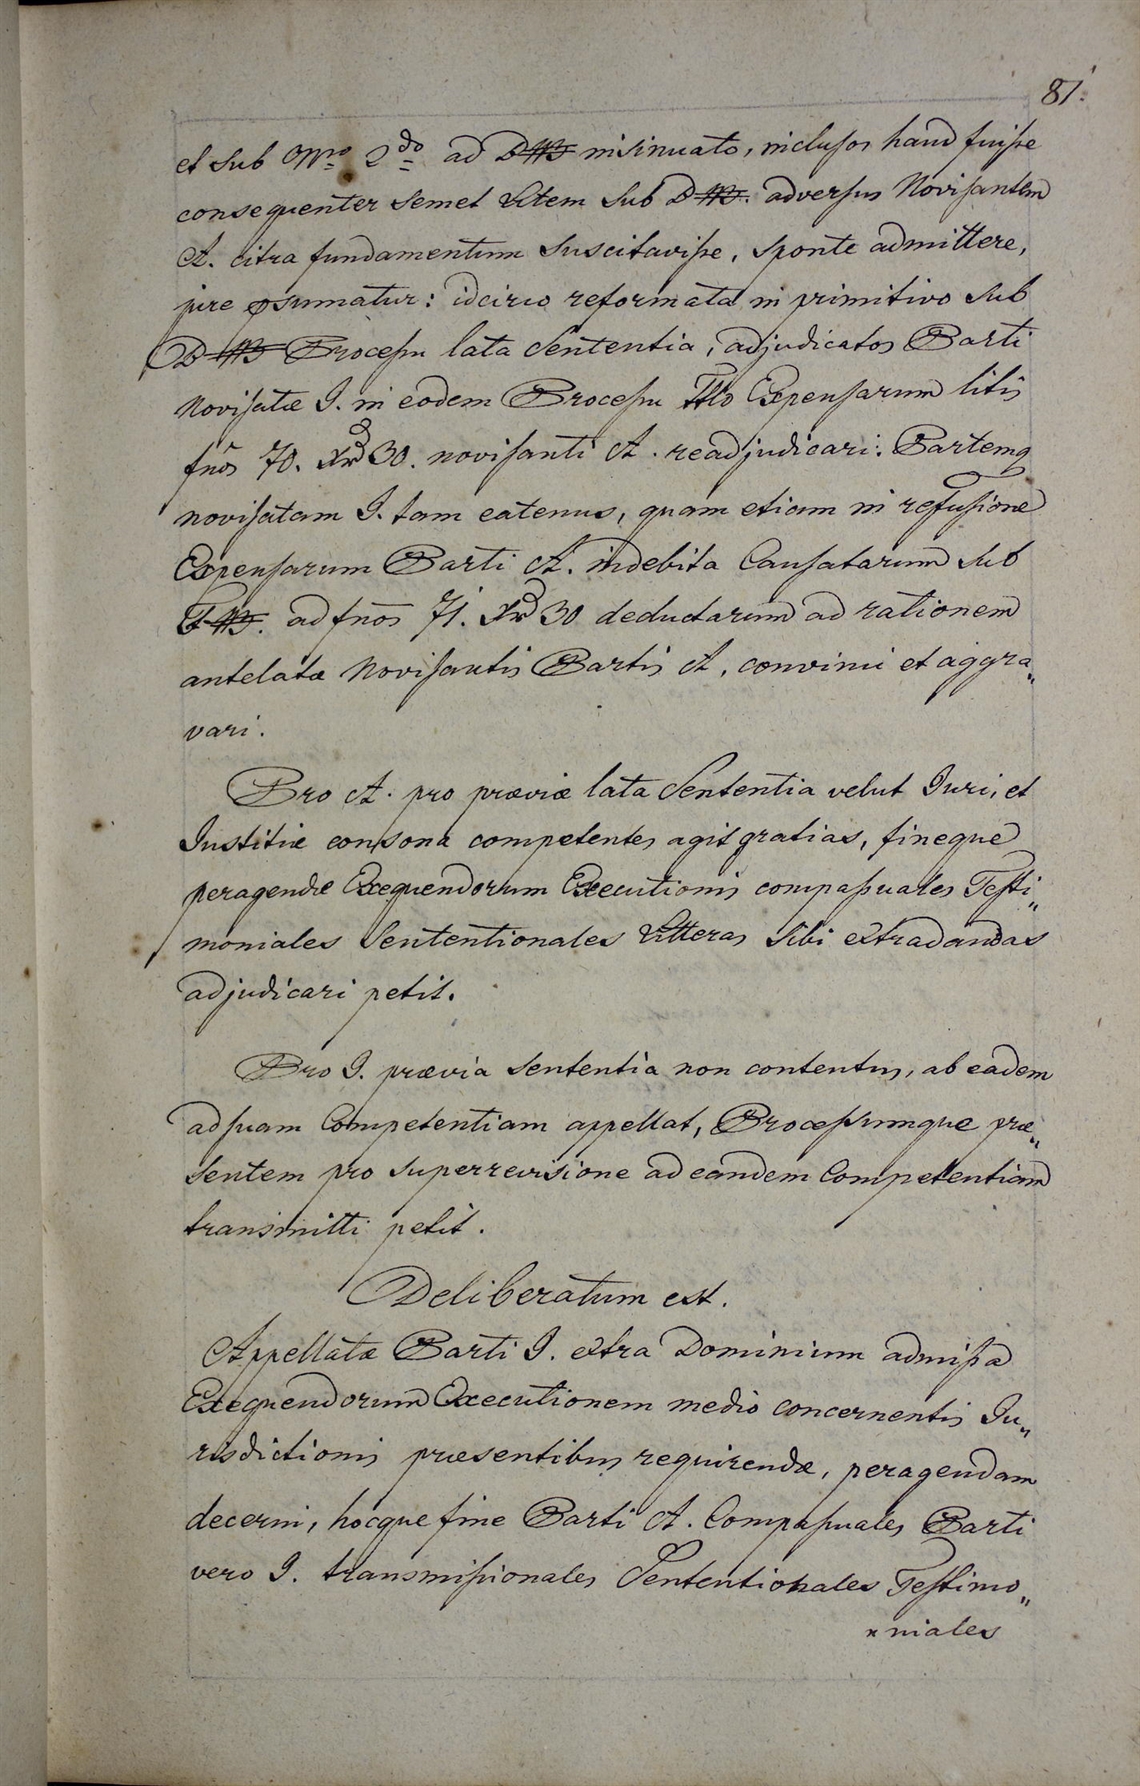 81.
et sub Nro 2do ad D insinuato, inclusos haud fuisse
consequenter semet Litem sub D. adversus Novisantem
A. citra fundamentum suscitavisse, sponte admittere,
jure psumatur: idcirco reformata in primitivo sub
D Processu lata Sententia, adjudicatos Parti
Novisatæ I. in eodem Processu Ttlo Expensarum litis
fnos 70. Xrd 30. novisanti A. readjudicari: Partemq
novisatam I. tam eatenus, quam etiam in refusione
Expensarum Parti A. indebita Causatarum sub
F. ad fnos 71. Xrd 30 deductarum ad rationem
antelatæ Novisantis Partis A. convinci et aggra„
vari.
Pro A. pro præviæ lata Sententia velut Juri, et
Justitiæ consona competentes agit gratias, fineque
peragendæ Exequendorum Executionis compassuales Testi„
moniales Sententionales Litteras sibi extradandas
adjudicari petit.
Pro I. prævia Sententia non contentus, ab eadem
ad suam Competentiam appellat, Processumque præ„
sentem pro superrevisione ad eandem Competentiam
transmitti petit.
Deliberatum est.
Appellatæ Parti I. extra Dominium admissa
Exequendorum Executionem medio concernentis Ju„
risdictionis præsentibus requirendæ, peragendam
decerni, hocque fine Parti A. Compassuales Parti
vero I. transmissionales Sententionales Testimo„
„niales